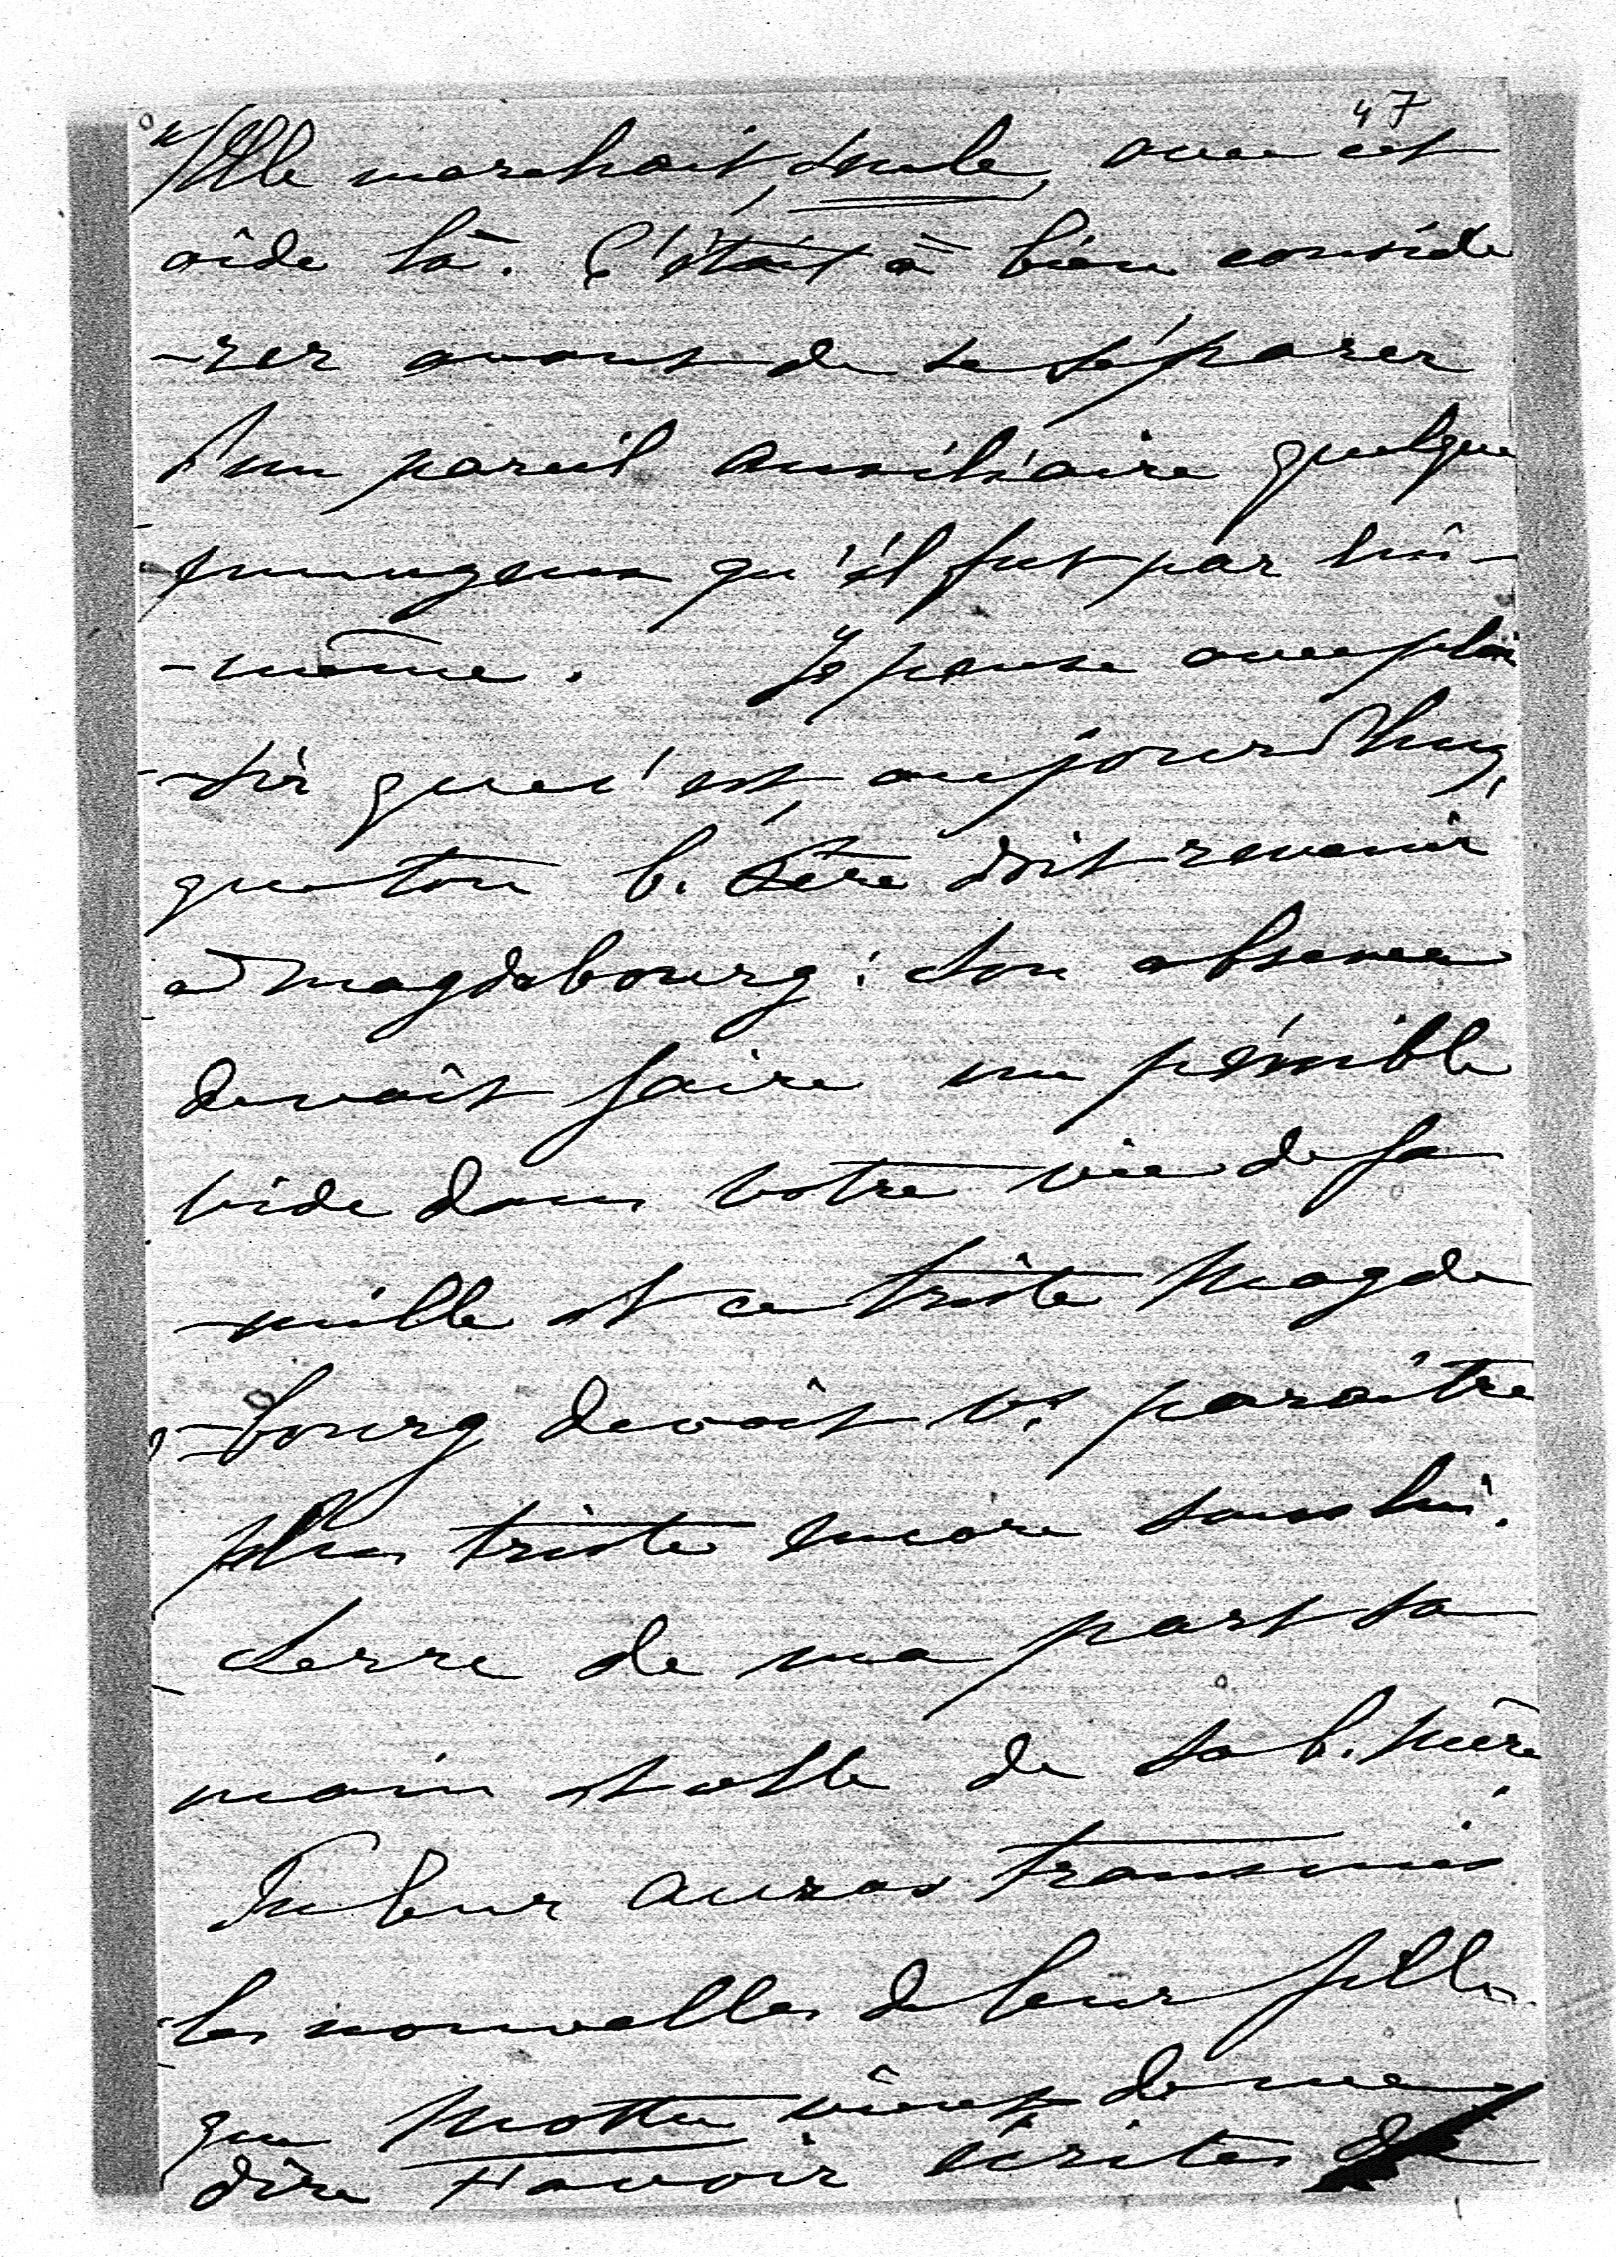 47
4/ Elle marchait, seule, avec cet
aide là. C'était à bien conside
-rer avant de se séparer
d'un pareil auxiliaire quelque
qu'il fut par lui-
-même. Je pense avec plai
-sir que c'est aujourd'huy
que ton b. Père doit revenir
à Magdebourg : Son absence
devait faire un pénible
vide dans votre vie de fa
-mille et ce triste Magde
-bourg devait vs paraitre
plus triste encore sans lui.
Serre de ma part sa
main et celle de ta b. Mère.
Tu leur auras transmis
les nouvelles de leur fille
que Motta vient de me
dire t'avoir écrites de